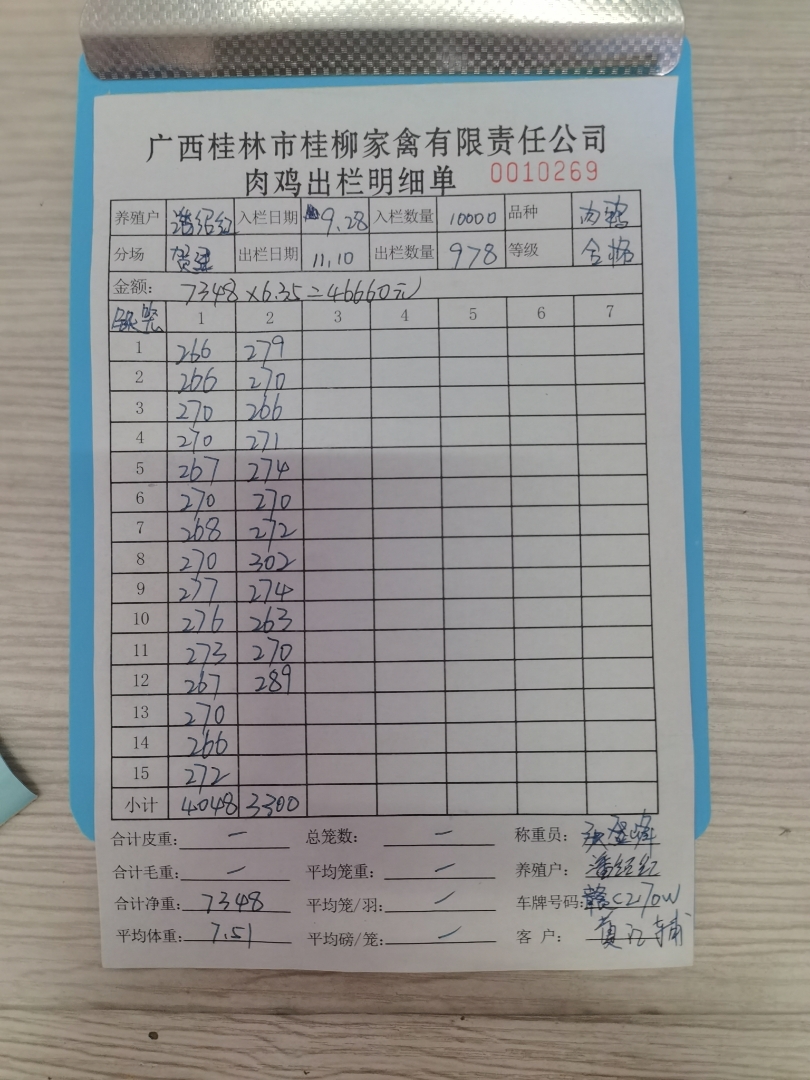 广西桂林市桂柳家禽有限责任公司
肉鸡出栏明细单 0010269
养殖户 潘绍红 入栏日期 9.28 入栏数量 10000 品种 肉鸭
分场 贺建 出栏日期 11.10 出栏数量 978 等级 合格
金额: 7348×6.35=46660元
1 2 3 4 5 6 7
1 266 279
2 266 270
3 270 266
4 270 271
5 267 274
6 270 270
7 268 272
8 270 302
9 277 274
10 276 263
11 273 270
12 267 289
13 270
14 266
15 272
小计 4048 3300
合计皮重: — 总笼数: — 称重员:
合计毛重: — 平均笼重: — 养殖户: 潘绍红
合计净重: 7348 平均笼/羽: — 车牌号码: 赣C270W
平均体重: 7.51 平均磅/笼: — 客 户: